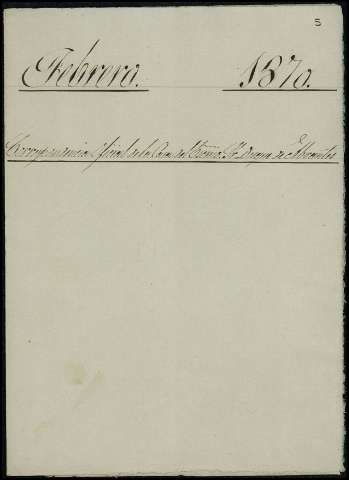 5
Febrero. 1870.
Correspondencia oficial de la Casa del Excmo. Sr. Duque de Abrantes